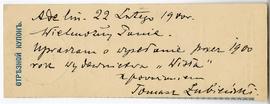 ОТРѢЗНОЙ КУПОНЪ.
Adelin. 22 Lutego 1900.
Wielmożny Panie.
Upraszam o wysłanie przez 1900
rok wydawnictwa "Wisła"
z poważaniem
Tomasz Łubieński